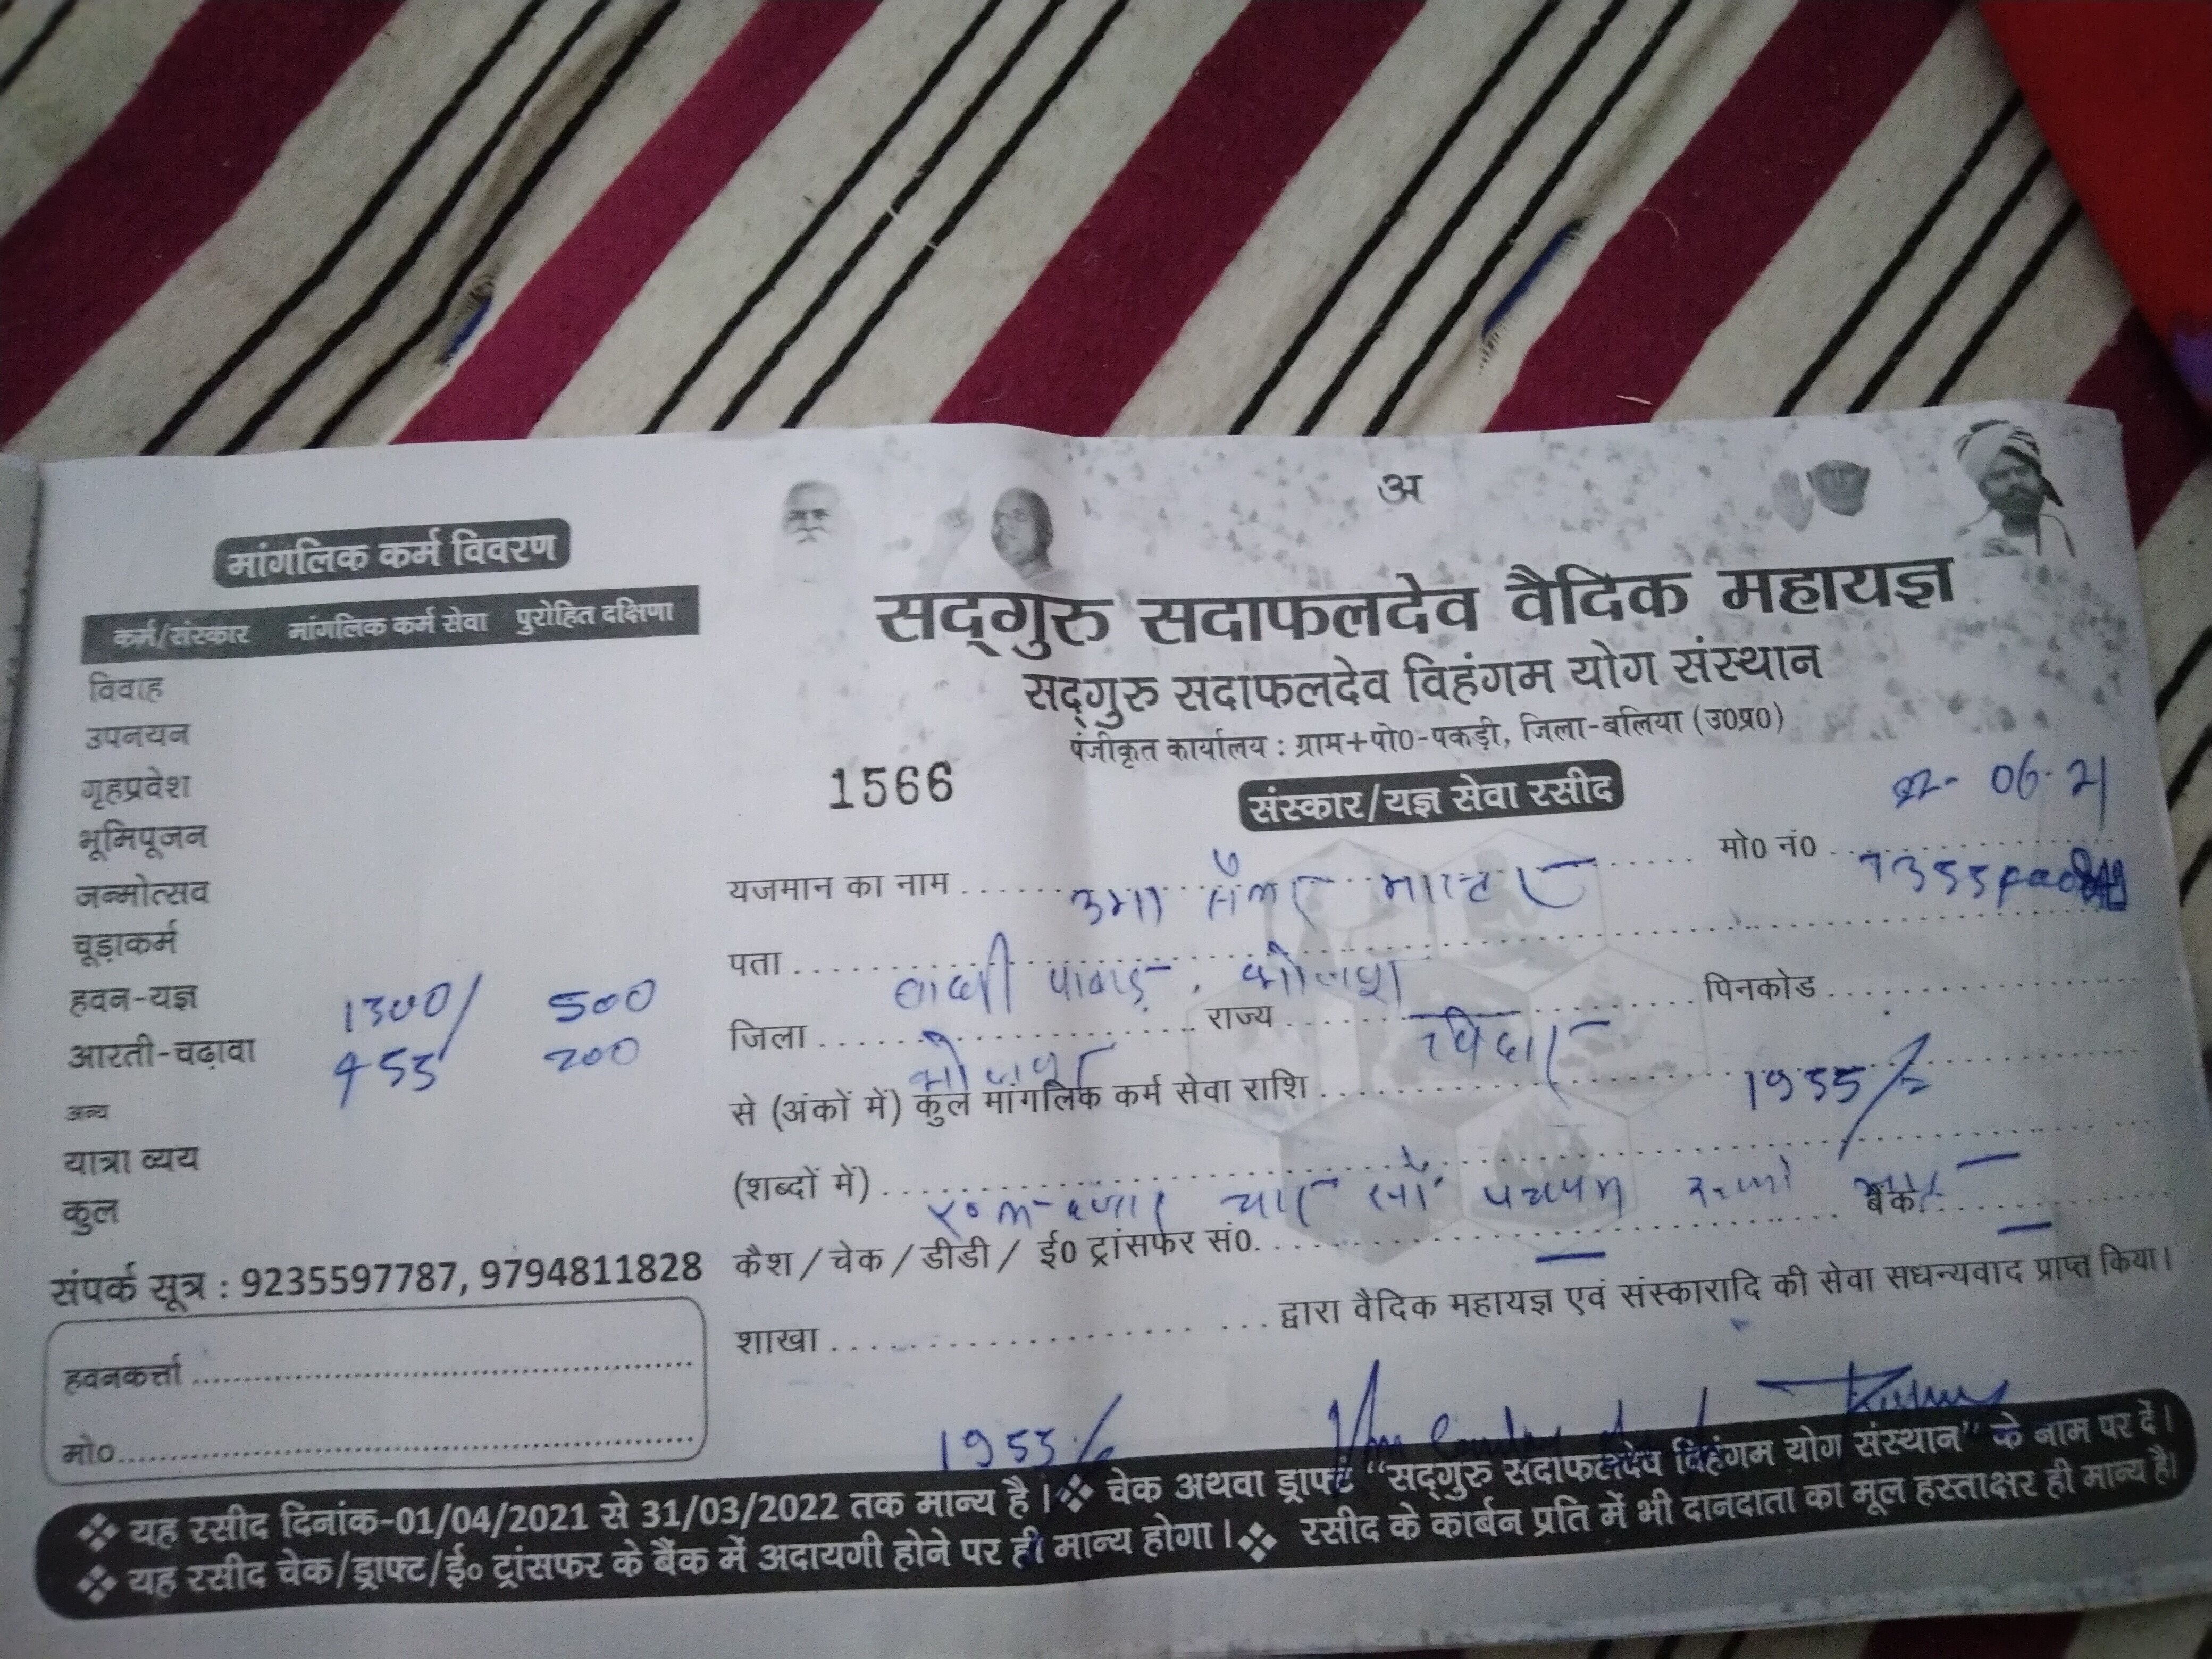 अ
मांगलिक कर्म विवरण
कर्म/संस्कार मांगलिक कर्म सेवा पुरोहित दक्षिणा
विवाह
उपनयन
गृहप्रवेश
भूमिपूजन
जन्मोत्सव
चूड़ाकर्म
हवन-यज्ञ 1300/ 500
आरती-चढ़ावा 455 200
अन्य
यात्रा व्यय
कुल
संपर्क सूत्र : 9235597787, 9794811828
हवनकर्त्ता
मो०
सद्गुरु सदाफलदेव वैदिक महायज्ञ
सद्गुरु सदाफलदेव विहंगम योग संस्थान
पंजीकृत कार्यालय : ग्राम+पो0-पकड़ी, जिला-बलिया (उ0प्र0)
1566
संस्कार/यज्ञ सेवा रसीद
22-06-21
यजमान का नाम उमा मो0 नं0
पता
जिला भोजपुर राज्य बिहार पिनकोड
से (अंकों में) कुल मांगलिक कर्म सेवा राशि 1955/=
(शब्दों में) पचपन
कैश / चेक / डीडी / ई0 ट्रांसफर सं0. बैंक
शाखा द्वारा वैदिक महायज्ञ एवं संस्कारादि की सेवा सधन्यवाद प्राप्त किया।
1955/
❖ यह रसीद दिनांक-01/04/2021 से 31/03/2022 तक मान्य है। ❖ चेक अथवा ड्राफ्ट "सद्गुरु सदाफलदेव विहंगम योग संस्थान" के नाम पर दें।
❖ यह रसीद चेक/ड्राफ्ट/ई० ट्रांसफर के बैंक में अदायगी होने पर ही मान्य होगा। ❖ रसीद के कार्बन प्रति में भी दानदाता का मूल हस्ताक्षर ही मान्य है।